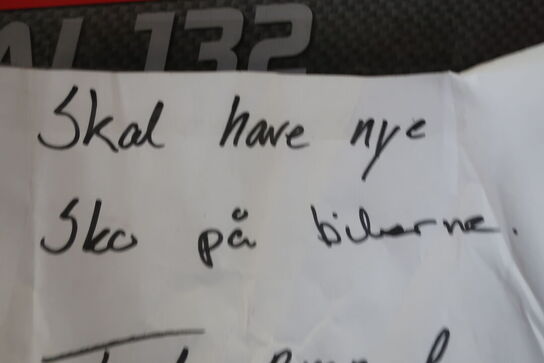 132
Skal have nye
Sko på bilerne.